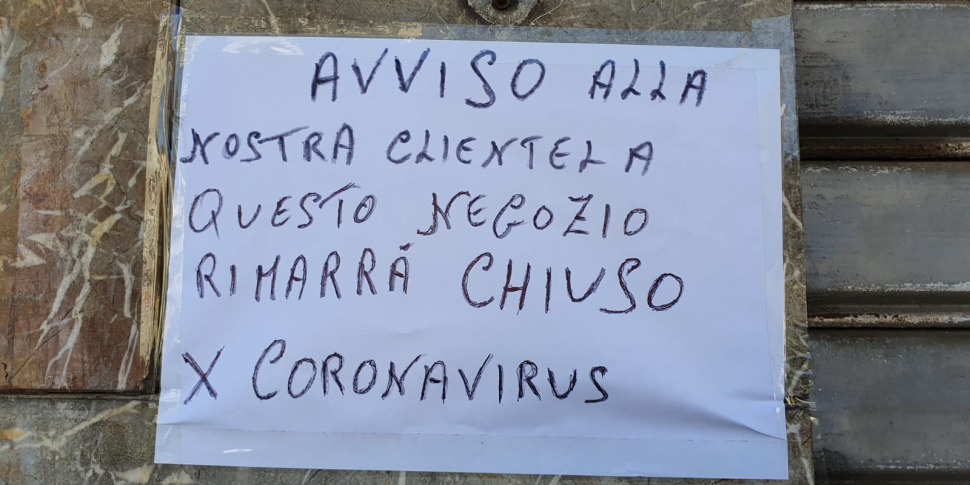 AVVISO ALLA
NOSTRA CLIENTELA
QUESTO NEGOZIO
RIMARRÁ CHIUSO
X CORONAVIRUS